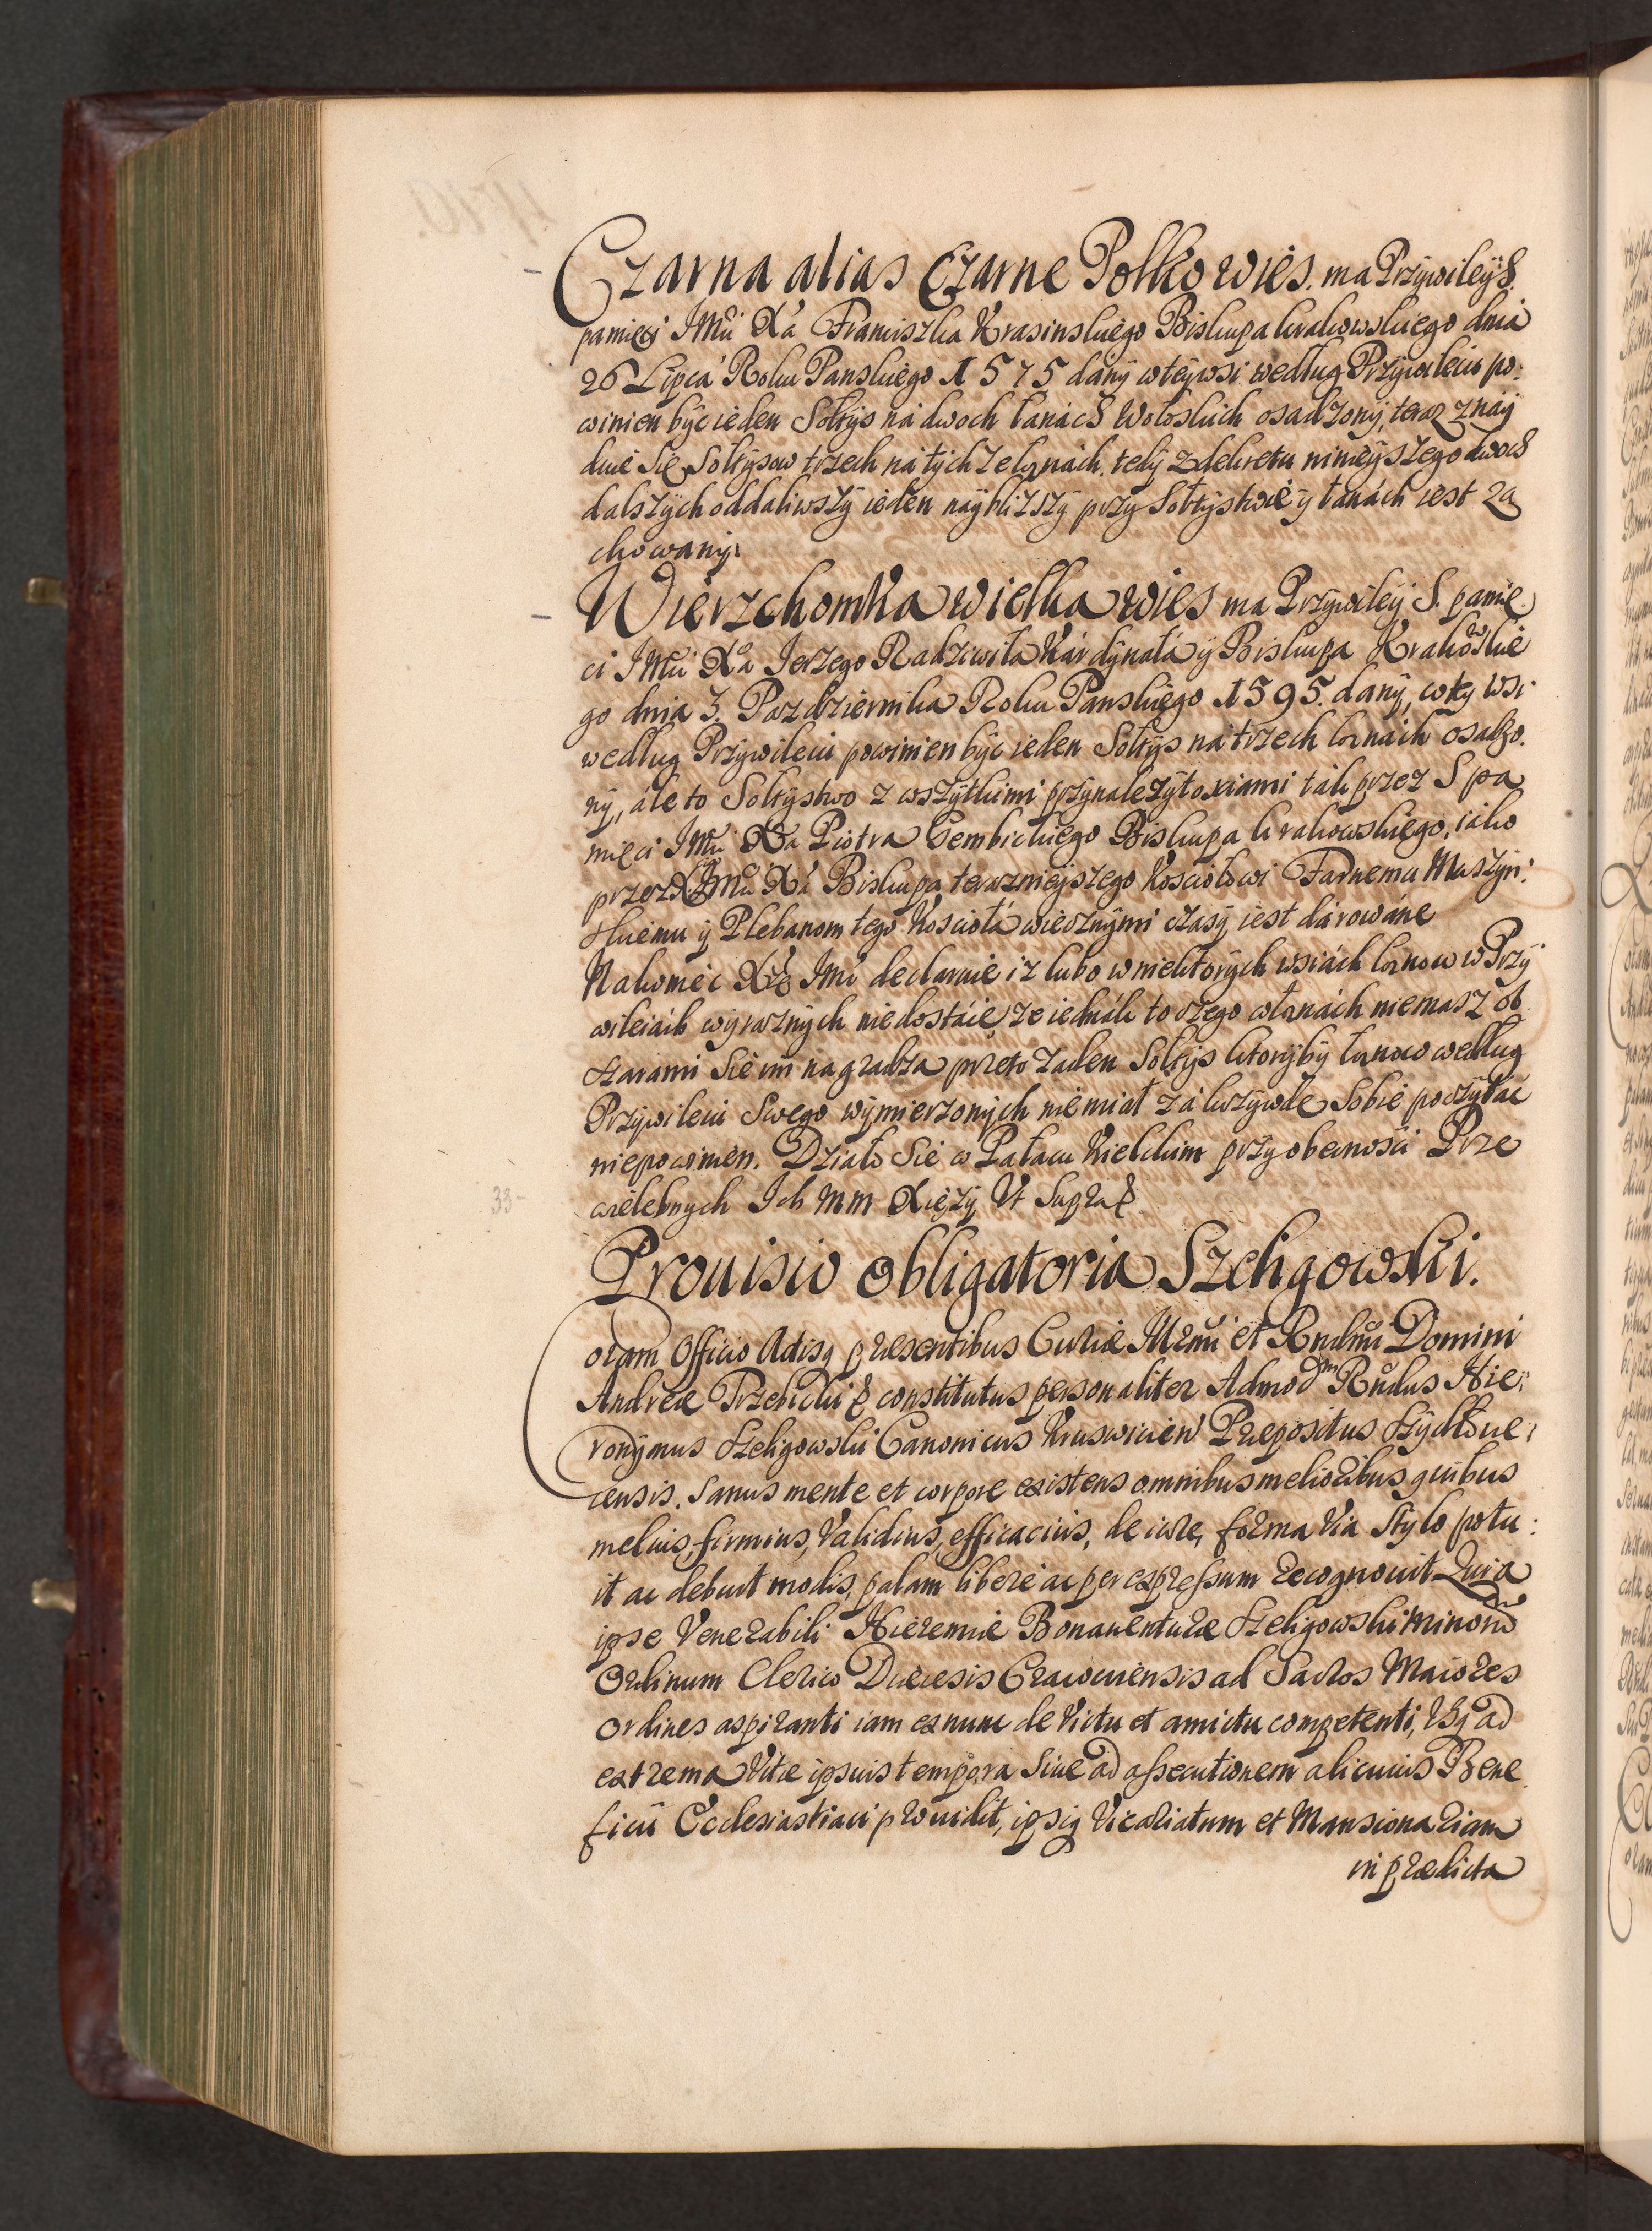 Czarna alias Czarne Polko wies. ma Przÿwileÿ S.
pamięci JMci Xa Franciszka Krasinskiego Biskupa krakowskiego dnia
26 Lipca Roku Panskiego 1575 danÿ wteÿwsi według Przÿwileiu po:
winien bÿc ieden Sołtÿs ná dwoch łanách Wołoskich osadzonÿ, teraz znaÿ
duie Się Sołtÿsow trzech ná tÿch ze łanách, tedÿ zdekretu ninieÿszego dwoch
dalszÿch oddaliwszÿ ieden naÿblizszÿ przÿ Sołtÿstwie ÿ łanách iest za
chowanÿ.
Wierzchomka wielka wies ma Przÿwileÿ S. pamię
ci JMci Xa Jerzego Radziwiła Kárdÿnałá ÿ Biskupa Krakowskie
go dnia 3. Pazdziernika Roku Panskiego 1595. danÿ, wteÿ Wsi
według Przÿwileiu powinien bÿc ieden Sołtÿs ná trzech łanách osadzo.
nÿ, ále to Sołtÿstwo z wszÿtkimi przÿnalezÿtosciami ták przez S pa
mięci JMci Xa Piotra Gembickiego Biskupa krakowskiego, iako
przez JMci Xa Biskupa teraznieÿszego Kosciołowi Farnemu Muszÿn:
skiemu ÿ Plebanom tego Kosciołá wiecznÿmi czasÿ iest dárowáne
Nakoniec Xże JMc declaruie iz lubo wniektorÿch wsiách łanow w Przÿ
wileiách wÿraznÿch niedostáie, ze iednák to czego włanách niemasz ob
szarami Sie im nagradza przeto zaden Sołtÿs ktorÿbÿ łanow według
Przÿwileiu Swego wÿmierzonÿch niemiał zá krzÿwdę Sobie poczÿtac
niepowinien. Działo Sie w Pałacu Kieleckim przÿ obecnosci Prze
wielebnych Ich mm Xięzÿ Vt Supra &
33-
Prouisio obligatoria Szeligowski.
Coram Officio Actisq presentibus Curiæ Illrmi et Rndmi Domini
Andreæ Trzebicki & constitutus personaliter Admodm Rndus Hie:
ronÿmus Szeligowski Canonicus Kruswicien Præpositus Szÿdłouie:
censis. Sanus mente et corpore existens omnibus melioribus quibus
melius, firmius, Validius, efficacius, de iure, forma Via Stÿlo potu:
it ac debuit modis, palam libere ac per expressum recognouit Quia
ipse Venerabili Hieremiæ Bonauenturæ Szeligowski Minorum
Ordinum Clerico Diæcesis Cracouiensis ad Sacros Maiores
Ordines aspiranti iam ex nunc de Victu et amictu competenti, Vsq ad
extrema Vitæ ipsius tempora Siue ad assecutionem alicuius Bene
ficii Ecclesiastiaci prouidit, ipsiq Vicariatum et Mansionariam
in prædicta